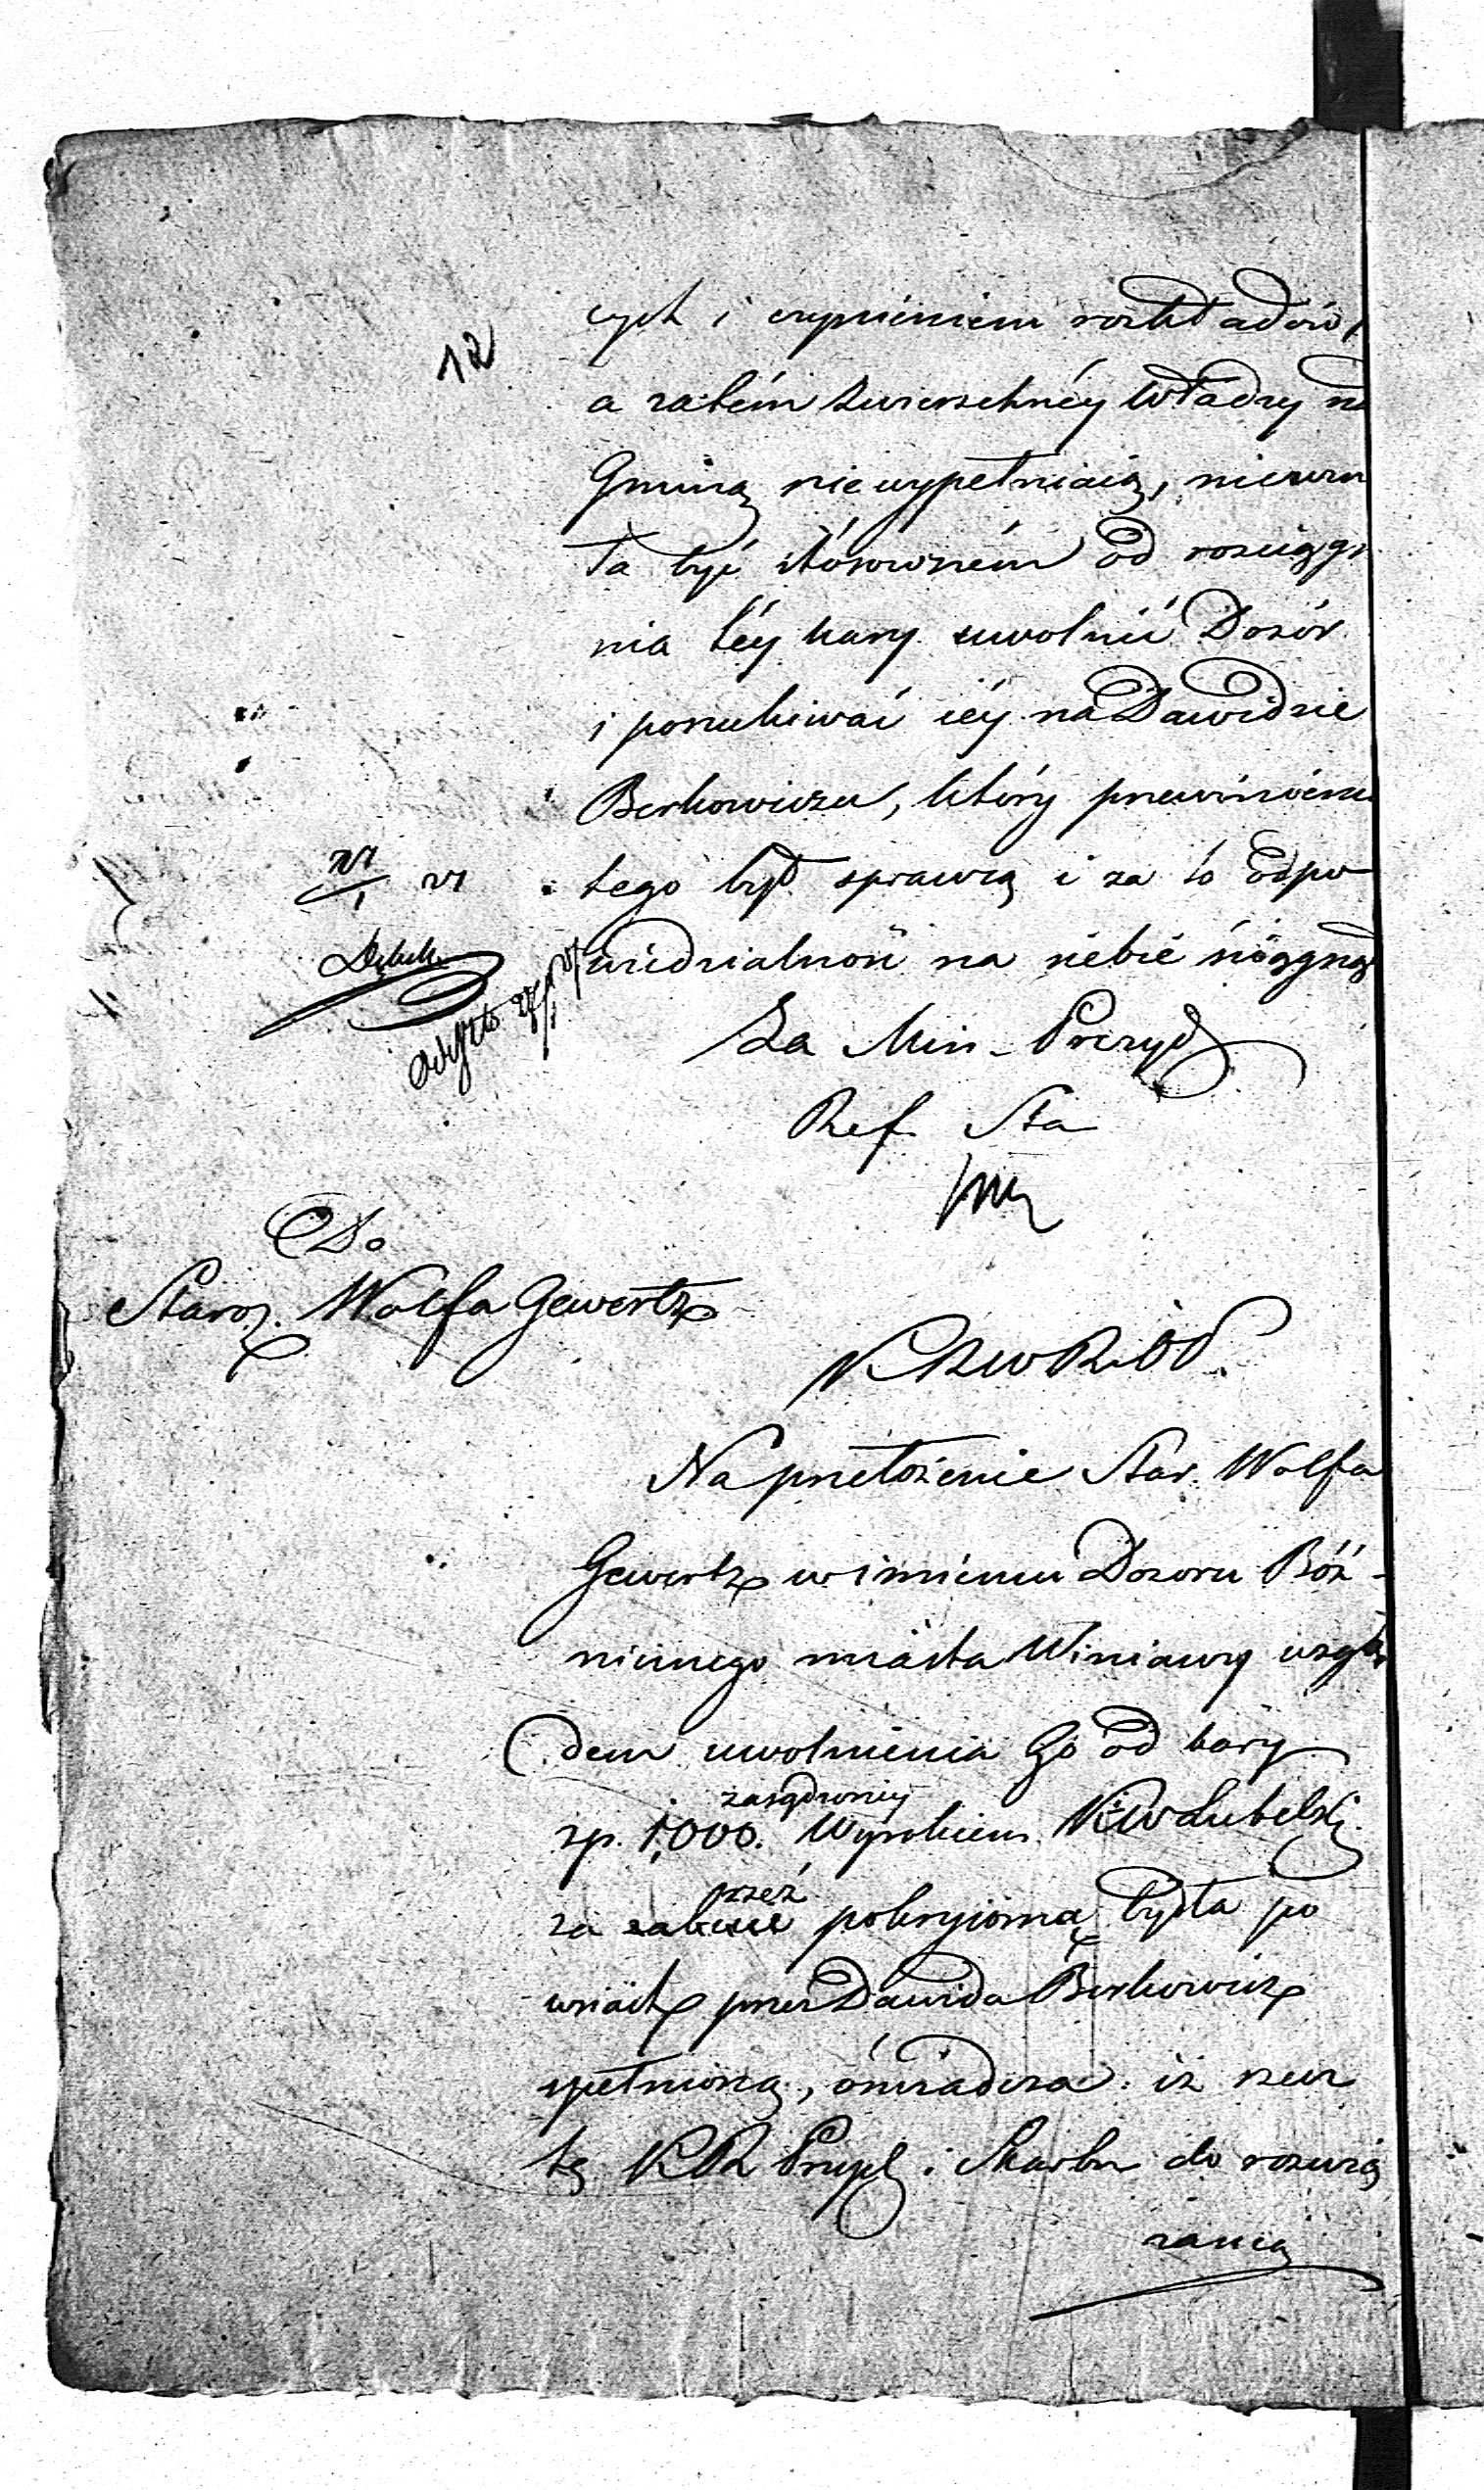 12
cych i czynieniem rozkładów,
a zatém Zwierzchnéy Władzy na
Gminą nie wypełniaią,
ta być stósowném od rosciągn
nia téy kary uwolnić Dozór
i poszukiwać iéy na Dawidzie
Berkowiczu, który przewinienia
tego był sprawcą i za to odpo
wiedzialność na siebie ściągnął
Za Min. Prezyd
Ref. Sta
Do
Staroz. Wolfa Gewertz
KRWRiOP.
Na przełożenie Star. Wolfa
Gewertz w imieniu Dozoru Bóż-
nicznego miasta Winiawy wzglę
dem uwolnienia Go od kary
zasądzoney
zp. 1,000. Wyrokiem KWLubelski.
rzeź
za pokryiomą bydła po
wsiach przez Dawida Berkowicz
spełnioną, oświadcza: iż rzecz
tę KRPrzych i Skarbu do rozwią
zania